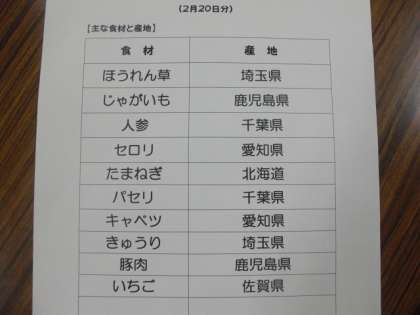 (2月20日分)
【主な食材と産地】
食材 産地
ほうれん草 埼玉県
じゃがいも 鹿児島県
人参 千葉県
セロリ 愛知県
たまねぎ 北海道
パセリ 千葉県
キャベツ 愛知県
きゅうり 埼玉県
豚肉 鹿児島県
いちご 佐賀県